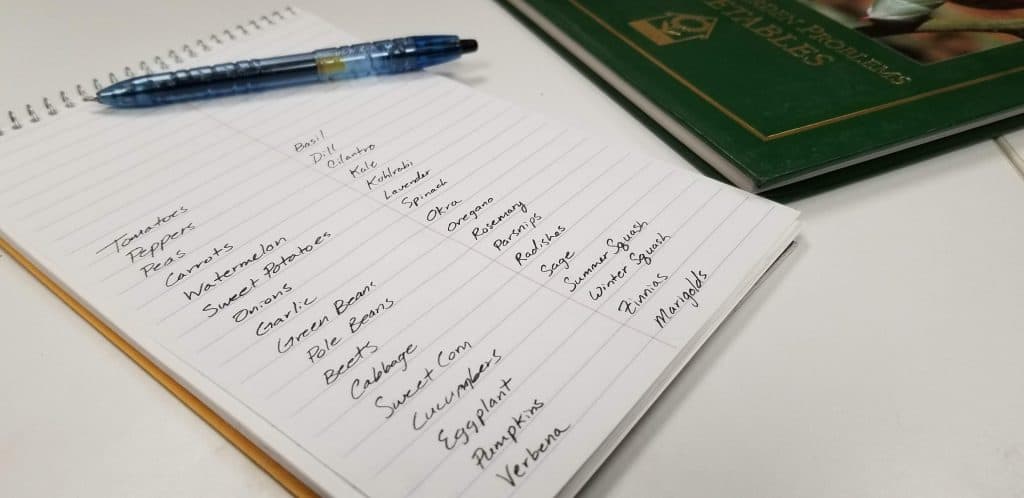 Tomatoes
Peppers
Peas
Carrots
Watermelon
Sweet Potatoes
Onions
Garlic
Green Beans
Pole Beans
Beets
Cabbage
Sweet Corn
Cucumbers
Eggplant
Pumpkins
Verbena
Basil
Dill
Cilantro
Kale
Kohlrabi
Lavender
Spinach
Okra
Oregano
Rosemary
Parsnips
Radishes
Sage
Summer Squash
Winter Squash
Zinnias
Marigolds
PROBLEMS